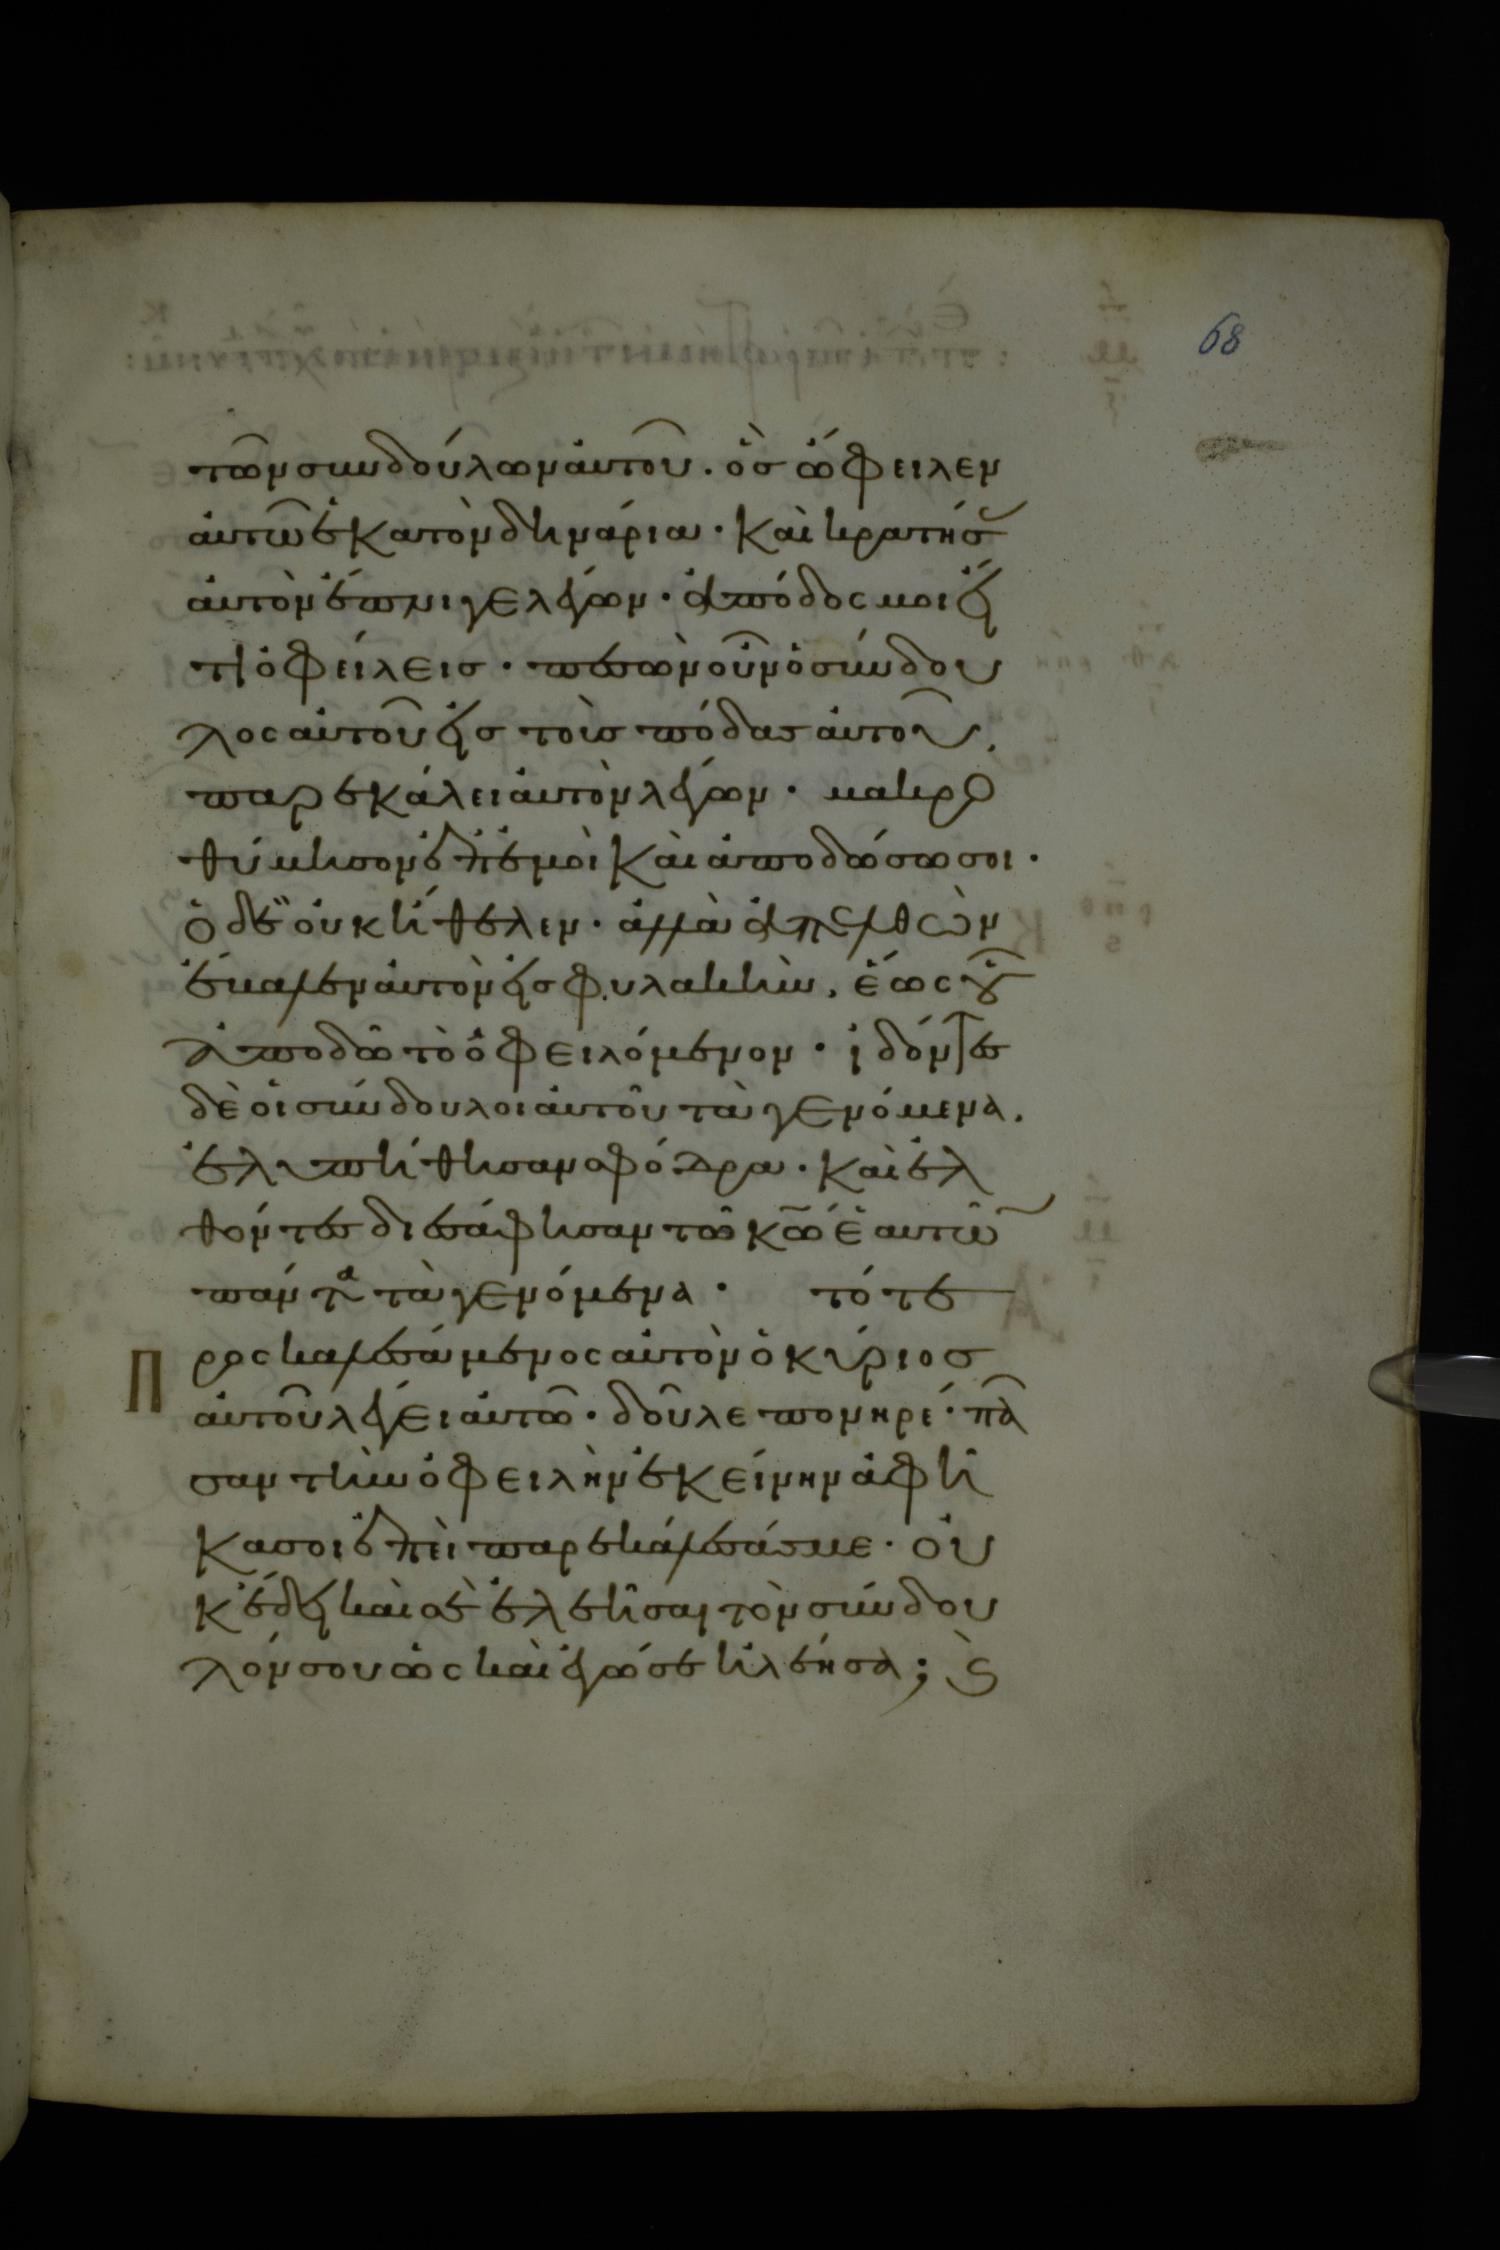 68
τῶν συνδούλων αὐτοῦ. ὃσ ὤφειλεν
αὐτῶ ἑκατὸν δηνάρια· καὶ κρατήσ
αὐτὸν ἔπνιγε λέγων· ἀπόδος μοι εἴ
τι ὀφείλεισ· πεσὼν οὖν ὁ σύνδου
λος αὐτοῦ εἰσ τοὺσ πόδασ αὐτοῦ,
παρεκάλει αὐτὸν λέγων· μακρο
θύμησον ἐπ ἐμοὶ καὶ ἀποδώσω σοι·
ὁ δὲ οὐκ ἤθελεν· ἀλλὰ ἀπελθὼν
ἔβαλεν αὐτὸν εἰσ φυλακὴν, ἕως οὗ
ἀποδῶ τὸ ὀφειλόμενον· ἰδόντεσ
δὲ οἱ σύνδουλοι αὐτοῦ τὰ γενόμενα.
ἐλυπήθησαν σφόδρα· καὶ ἐλ
θόντεσ διεσάφησαν τῶ κω ἑαυτῶ
πάντα τὰ γενόμενα· τότε
Προσκαλεσάμενος αὐτὸν ὁ κύριοσ
αὐτοῦ λέγει αὐτῶ· δοῦλε πονηρέ· πᾶ
σαν τὴν ὀφειλὴν ἐκείνην ἀφῆ
κα σοι ἐπεὶ παρεκάλεσάσ με· οὐ
κ ἔδει καὶ σὲ ἐλεῆσαι τὸν σύνδου
λόν σου ὡς καὶ ἐγώ σε ἠλέησα; ϗ